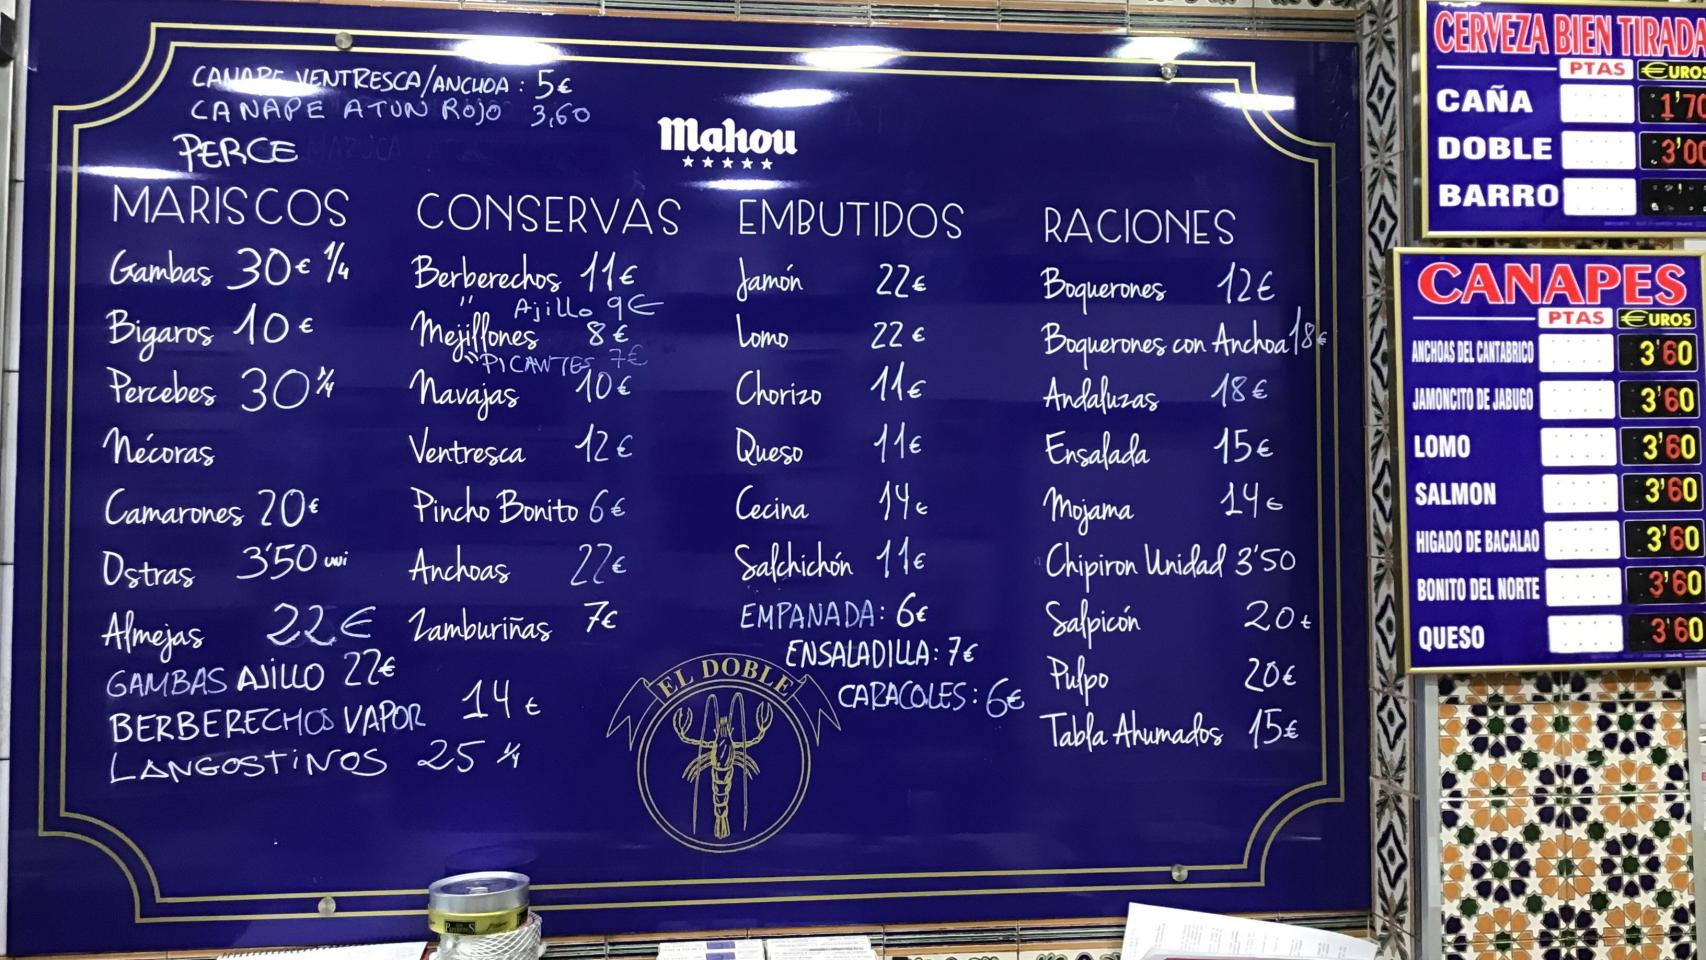 CANAPE VENTRESCA/ANCHOA : 5€
CANAPE ATUN ROJO 3,60
PERCE
Mahou
MARISCOS
Gambas 30€ 1/4
Bigaros 10€
Percebes 30 1/4
Nécoras
Camarones 20€
Ostras 3'50 uni
Almejas 22€
GAMBAS AJILLO 22€
BERBERECHOS VAPOR 14€
LANGOSTINOS 25 1/4
CONSERVAS
Berberechos 11€
" Ajillo 9€
Mejillones 8€
" PICANTES 7€
Navajas 10€
Ventresca 12€
Pincho Bonito 6€
Anchoas 22€
Zamburiñas 7€
EMBUTIDOS
Jamón 22€
Lomo 22€
Chorizo 11€
Queso 11€
Cecina 14€
Salchichón 11€
EMPANADA: 6€
ENSALADILLA: 7€
CARACOLES: 6€
EL DOBLE
RACIONES
Boquerones 12€
Boquerones con Anchoa 18€
Andaluzas 18€
Ensalada 15€
Mojama 14€
Chipiron Unidad 3'50
Salpicón 20€
Pulpo 20€
Tabla Ahumados 15€
CERVEZA BIEN TIRADA
PTAS €UROS
CAÑA 1'70
DOBLE 3'00
BARRO
CANAPES
PTAS €UROS
ANCHOAS DEL CANTABRICO 3'60
JAMONCITO DE JABUGO 3'60
LOMO 3'60
SALMON 3'60
HIGADO DE BACALAO 3'60
BONITO DEL NORTE 3'60
QUESO 3'60